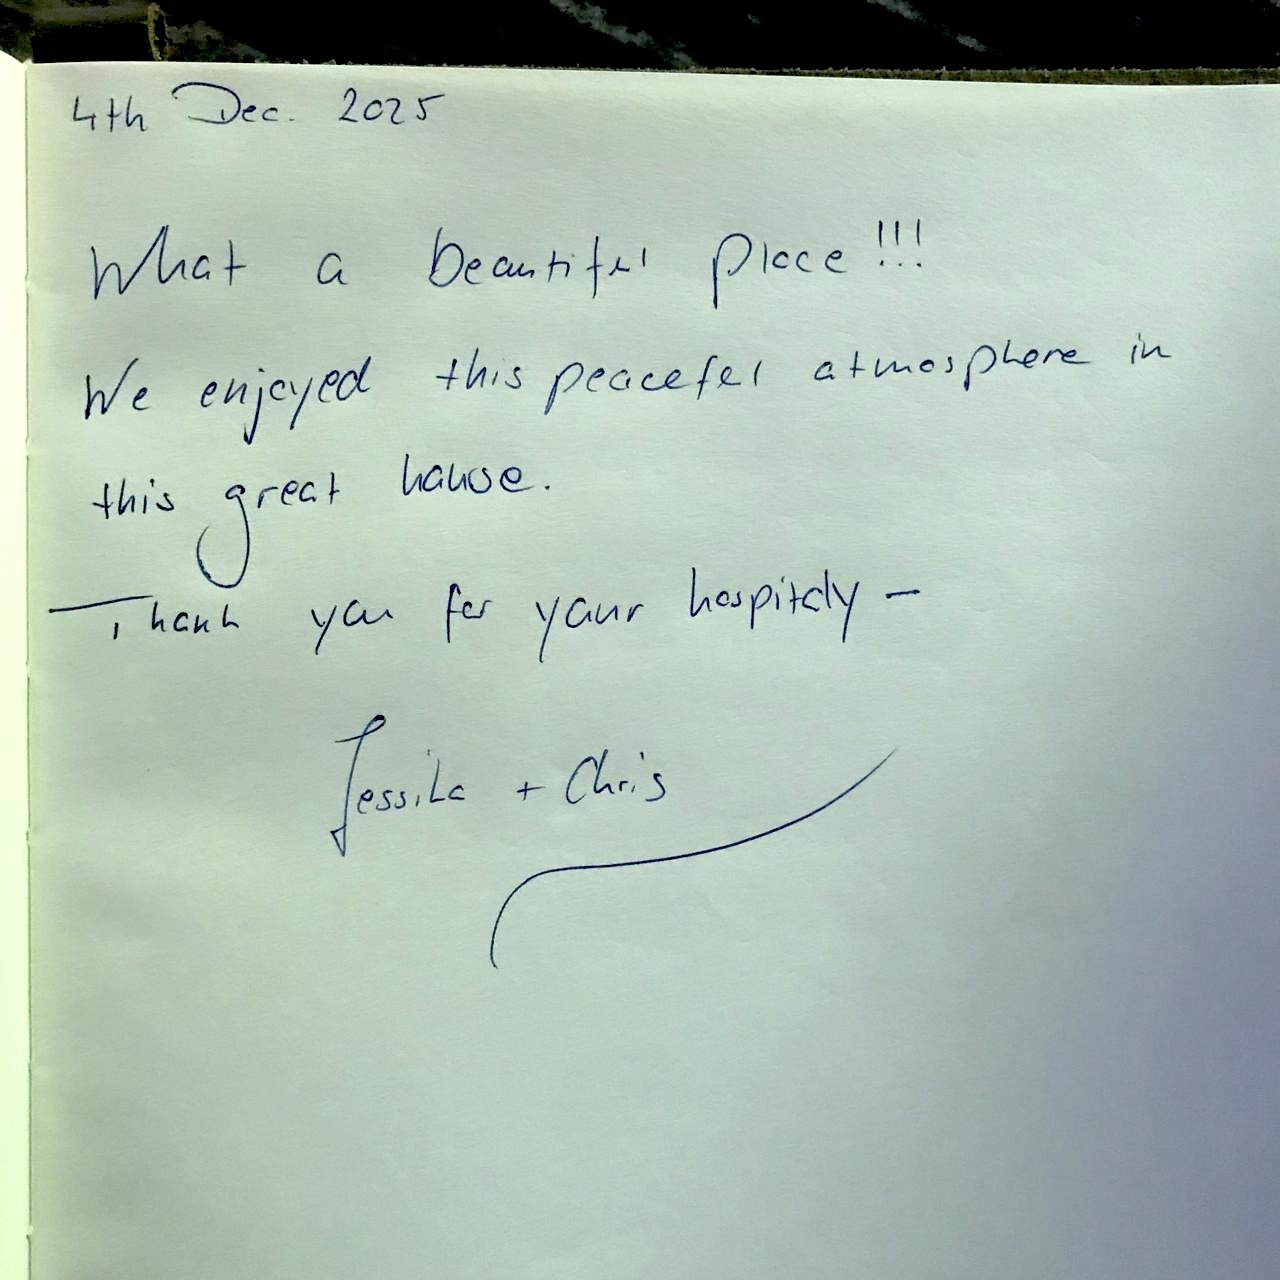 4th Dec. 2025
What a beautiful place!!!
We enjoyed this peaceful atmosphere in
this great house.
Thank you for your hospitaly –
Jessika + Chris